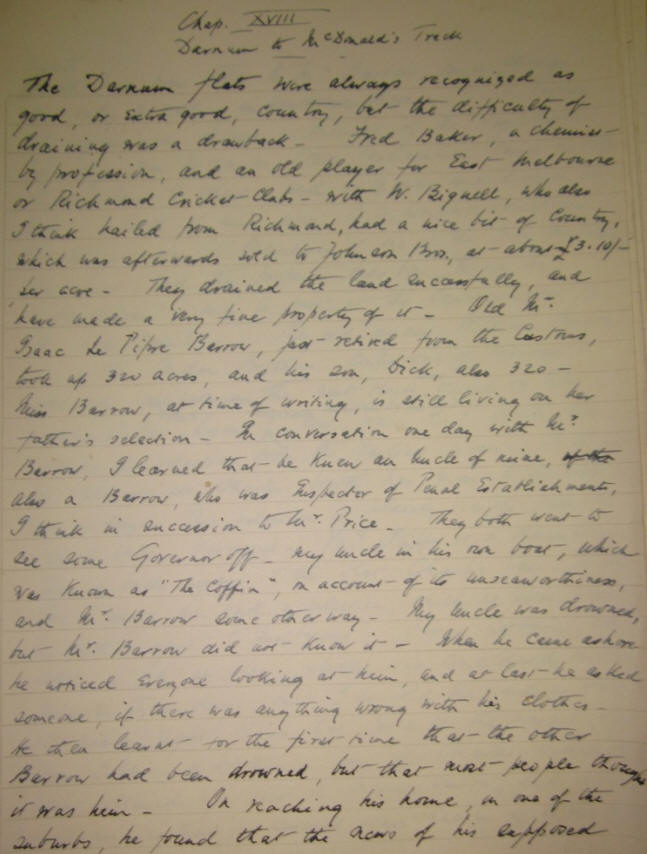 Chap. XVIII
Darnum to McDonald's Track
The Darnum flats were always recognized as
good, or extra good, country, but the difficulty of
draining was a drawback - Fred Baker, a chemist
by profession, and an old player for East Melbourne
or Richmond Cricket Clubs - with W. Bignell, who also
I think hailed from Richmond, had a nice bit of country,
which was afterwards sold to Johnson Bros, at about £3.10/-
per acre - They drained the land successfully, and
have made a very fine property of it - Old Mr.
Isaac Le Pipre Barrow, just retired from the Customs,
took up 320 acres, and his son, Dick, also 320 -
Miss Barrow, at time of writing, is still living on her
father's selection - In conversation one day with Mr.
Barrow, I learned that he knew an uncle of mine, of the
also a Barrow, who was Inspector of Penal Establishments,
I think in succession to Mr. Price - They both went to
see some Governor off - my uncle in his own boat, which
was known as "The Coffin", on account of its unseaworthiness,
and Mr. Barrow some other way - My uncle was drowned,
but Mr. Barrow did not know it - When he came ashore
he noticed everyone looking at him, and at last he asked
someone, if there was anything wrong with his clothes -
He then learnt for the first time that the other
Barrow had been drowned, but that most people thought
it was him - On reaching his home, in one of the
suburbs, he found that the news of his supposed